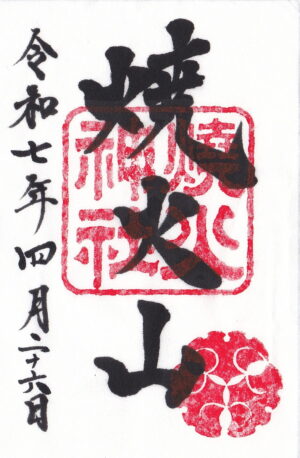 焼火山
焼火
神社
令和七年四月二十六日